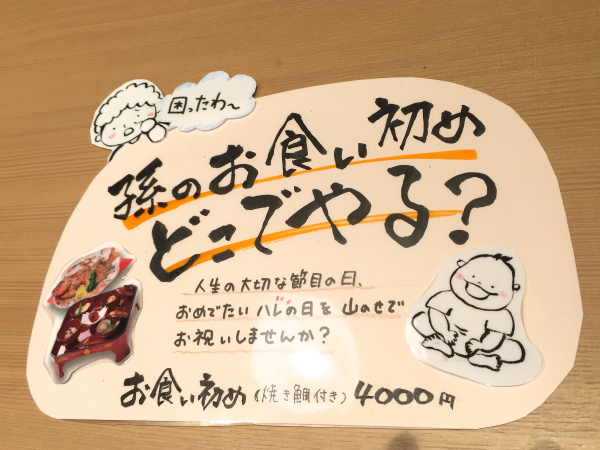 困ったわ〜
孫のお食い初め
どこでやる?
人生の大切な節目の日、
おめでたいハレの日を山のせで
お祝いしませんか?
お食い初め(焼き鯛付き)4000円